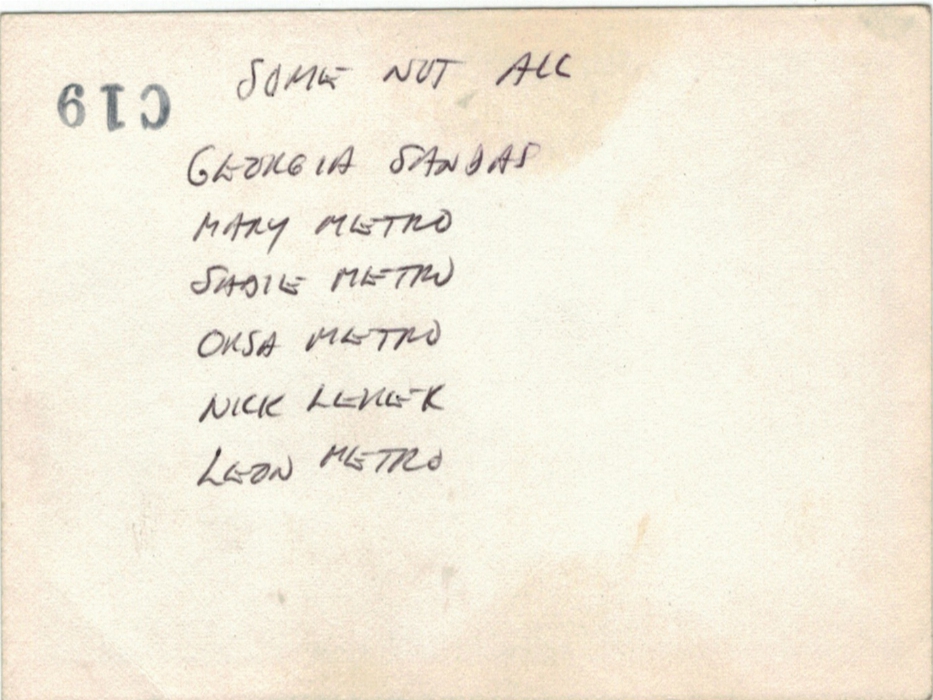 C19
SOME NOT ALL
GEORGIA SANDAS
MARY METRO
SADIE METRO
ORSA METRO
NICK
LEON METRO